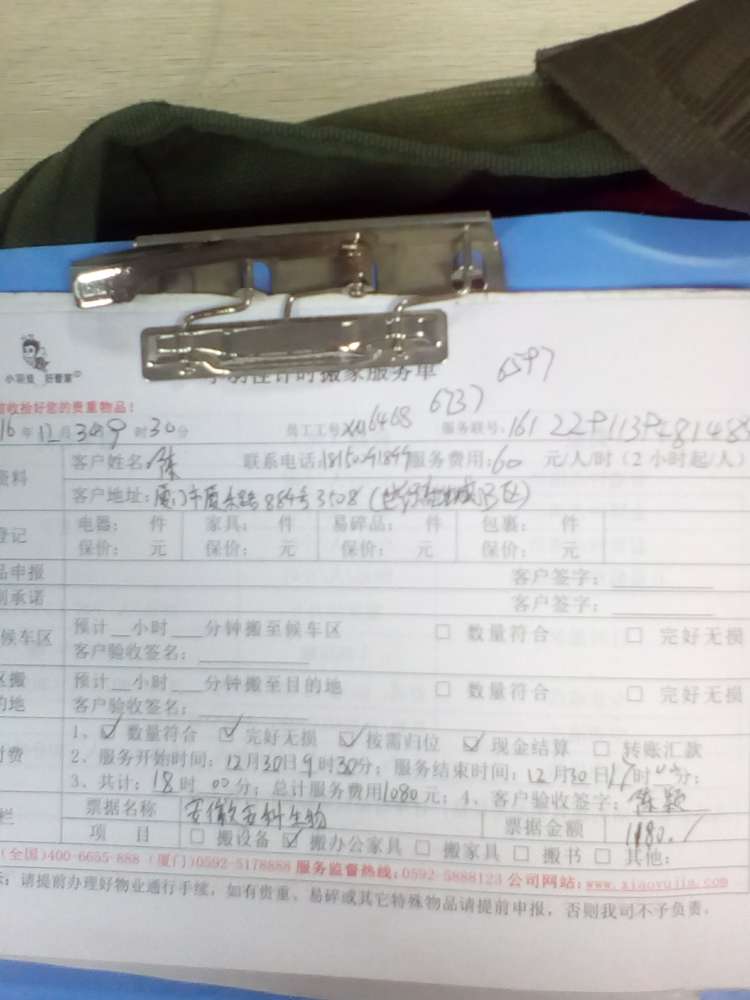 小羽佳 好管家
计时搬家服务单
6597
收捡好您的贵重物品！
6468 6737
16年12月30日9时30分 员工工号: 服务联号:
资料 客户姓名:陈 联系电话: 服务费用:60 元/人/时(2小时起/人)
客户地址:厦门市厦禾路884号3508
登记 电器: 件 家具: 件 易碎品: 件 包裹: 件
保价: 元 保价: 元 保价: 元 保价: 元
品申报 客户签字:
别承诺 客户签字:
候车区 预计__小时___分钟搬至候车区 □ 数量符合 □ 完好无损
客户验收签名:
区搬 预计__小时___分钟搬至目的地 □ 数量符合 □ 完好无损
的地 客户验收签名:
1、☑ 数量符合 ☑ 完好无损 ☑ 按需归位 ☑ 现金结算 □ 转账汇款
付费 2、服务开始时间:12月30日9时30分; 服务结束时间:12月30日 时 分;
3、共计:18时00分; 总计服务费用1080元; 4、客户验收签字:陈颖
栏 票据名称 安徽安科生物 票据金额 1180./
项 目 □ 搬设备 ☑ 搬办公家具 □ 搬家具 □ 搬书 □ 其他:
(全国)400-6655-888 (厦门)0592-5178888 服务监督热线:0592-5888123 公司网站:www.xiaoyujia.com
示: 请提前办理好物业通行手续, 如有贵重、易碎或其它特殊物品请提前申报, 否则我司不予负责。